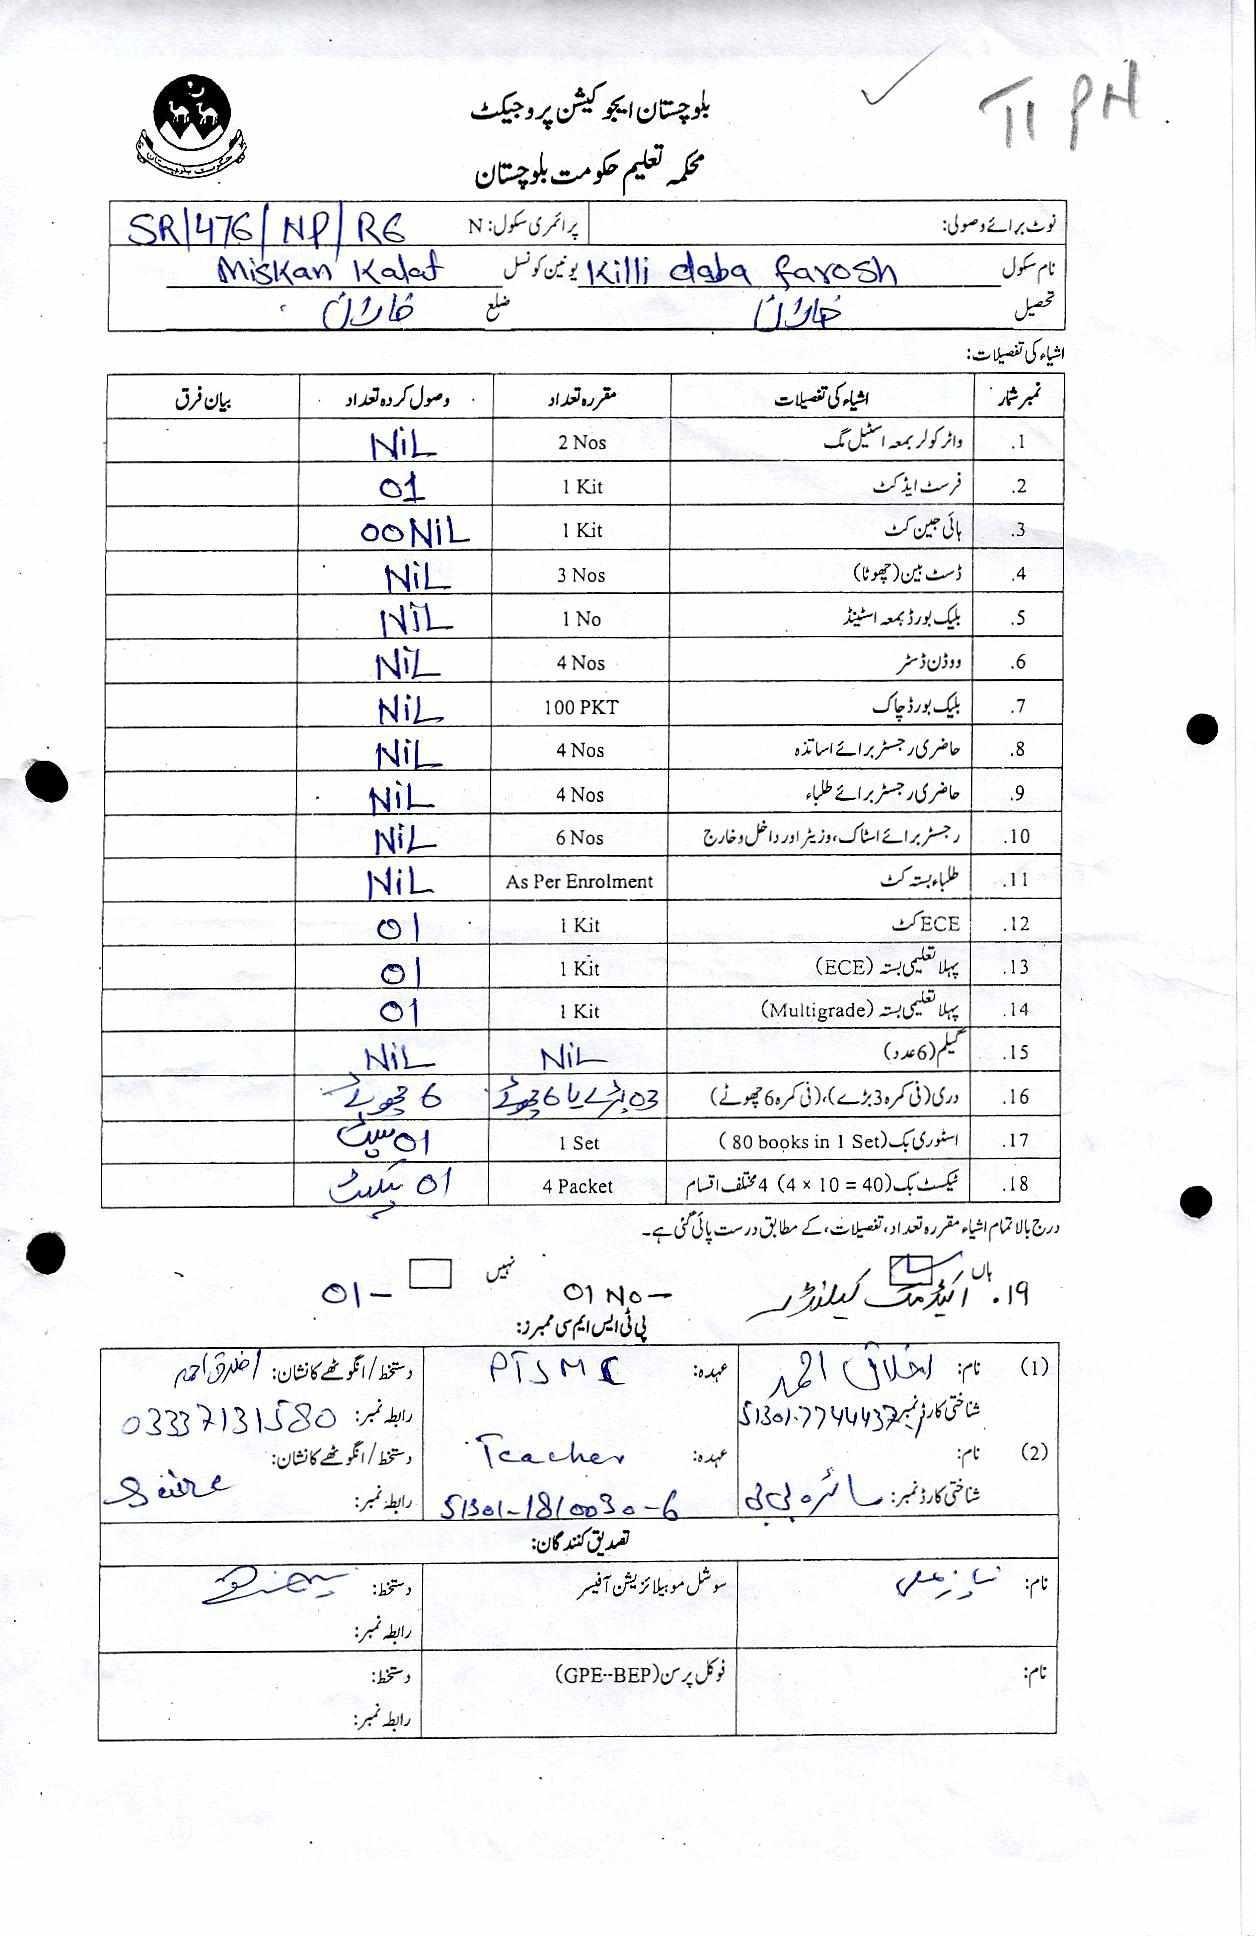 بلوچستان ایجوکیشن پروجیکٹ
محکمہ تعلیم حکومت بلوچستان
TI PH
نوٹ برائے وصولی: پرائمری سکول: N SR/476/NP/RG
نام سکول Killi daba farosh یونین کونسل Miskan Kalat
تحصیل خاران ضلع خاران
اشیاء کی تفصیلات:
نمبر شمار اشیاء کی تفصیلات مقررہ تعداد وصول کردہ تعداد بیان فرق
1. واٹر کولر بمعہ اسٹیل مگ 2 Nos NiL
2. فرسٹ ایڈ کٹ 1 Kit 01
3. ہائی جین کٹ 1 Kit 00 NiL
4. ڈسٹ بین (چھوٹا) 3 Nos NiL
5. بلیک بورڈ بمعہ اسٹینڈ 1 No NiL
6. ووڈن ڈسٹر 4 Nos NiL
7. بلیک بورڈ چاک 100 PKT NiL
8. حاضری رجسٹر برائے اساتذہ 4 Nos NiL
9. حاضری رجسٹر برائے طلباء 4 Nos NiL
10. رجسٹر برائے اسٹاک، وزیٹر اور داخل و خارج 6 Nos NiL
11. طلباء بستہ کٹ As Per Enrolment NiL
12. ECE کٹ 1 Kit 01
13. پہلا تعلیمی بستہ (ECE) 1 Kit 01
14. پہلا تعلیمی بستہ (Multigrade) 1 Kit 01
15. گیلم (6 عدد) NiL NiL
16. دری (فی کمرہ 3 بڑے)، (فی کمرہ 6 چھوٹے) 03 بڑے یا 6 چھوٹے 6 چھوٹے
17. اسٹوری بک (80 books in 1 Set) 1 Set 01 سیٹ
18. ٹیکسٹ بک (4 × 10 = 40) 4 مختلف اقسام 4 Packet 01 پیکیٹ
درج بالا تمام اشیاء مقررہ تعداد، تفصیلات، کے مطابق درست پائی گئی ہے۔
ہاں نہیں
۱۹. اکیڈمک کیلنڈر 01 No - 01 -
پی ٹی ایس ایم سی ممبرز:
(1) نام: اخلاق احمد عہدہ: PTSMC دستخط / انگوٹھے کا نشان:
شناختی کارڈ نمبر: رابطہ نمبر: 03337131580
(2) نام: عہدہ: Teacher دستخط / انگوٹھے کا نشان:
شناختی کارڈ نمبر: سائرہ بی بی 51301-1810030-6 رابطہ نمبر:
تصدیق کنندگان:
نام: سوشل موبیلائزیشن آفیسر دستخط:
رابطہ نمبر:
نام: فوکل پرسن (GPE--BEP) دستخط:
رابطہ نمبر: